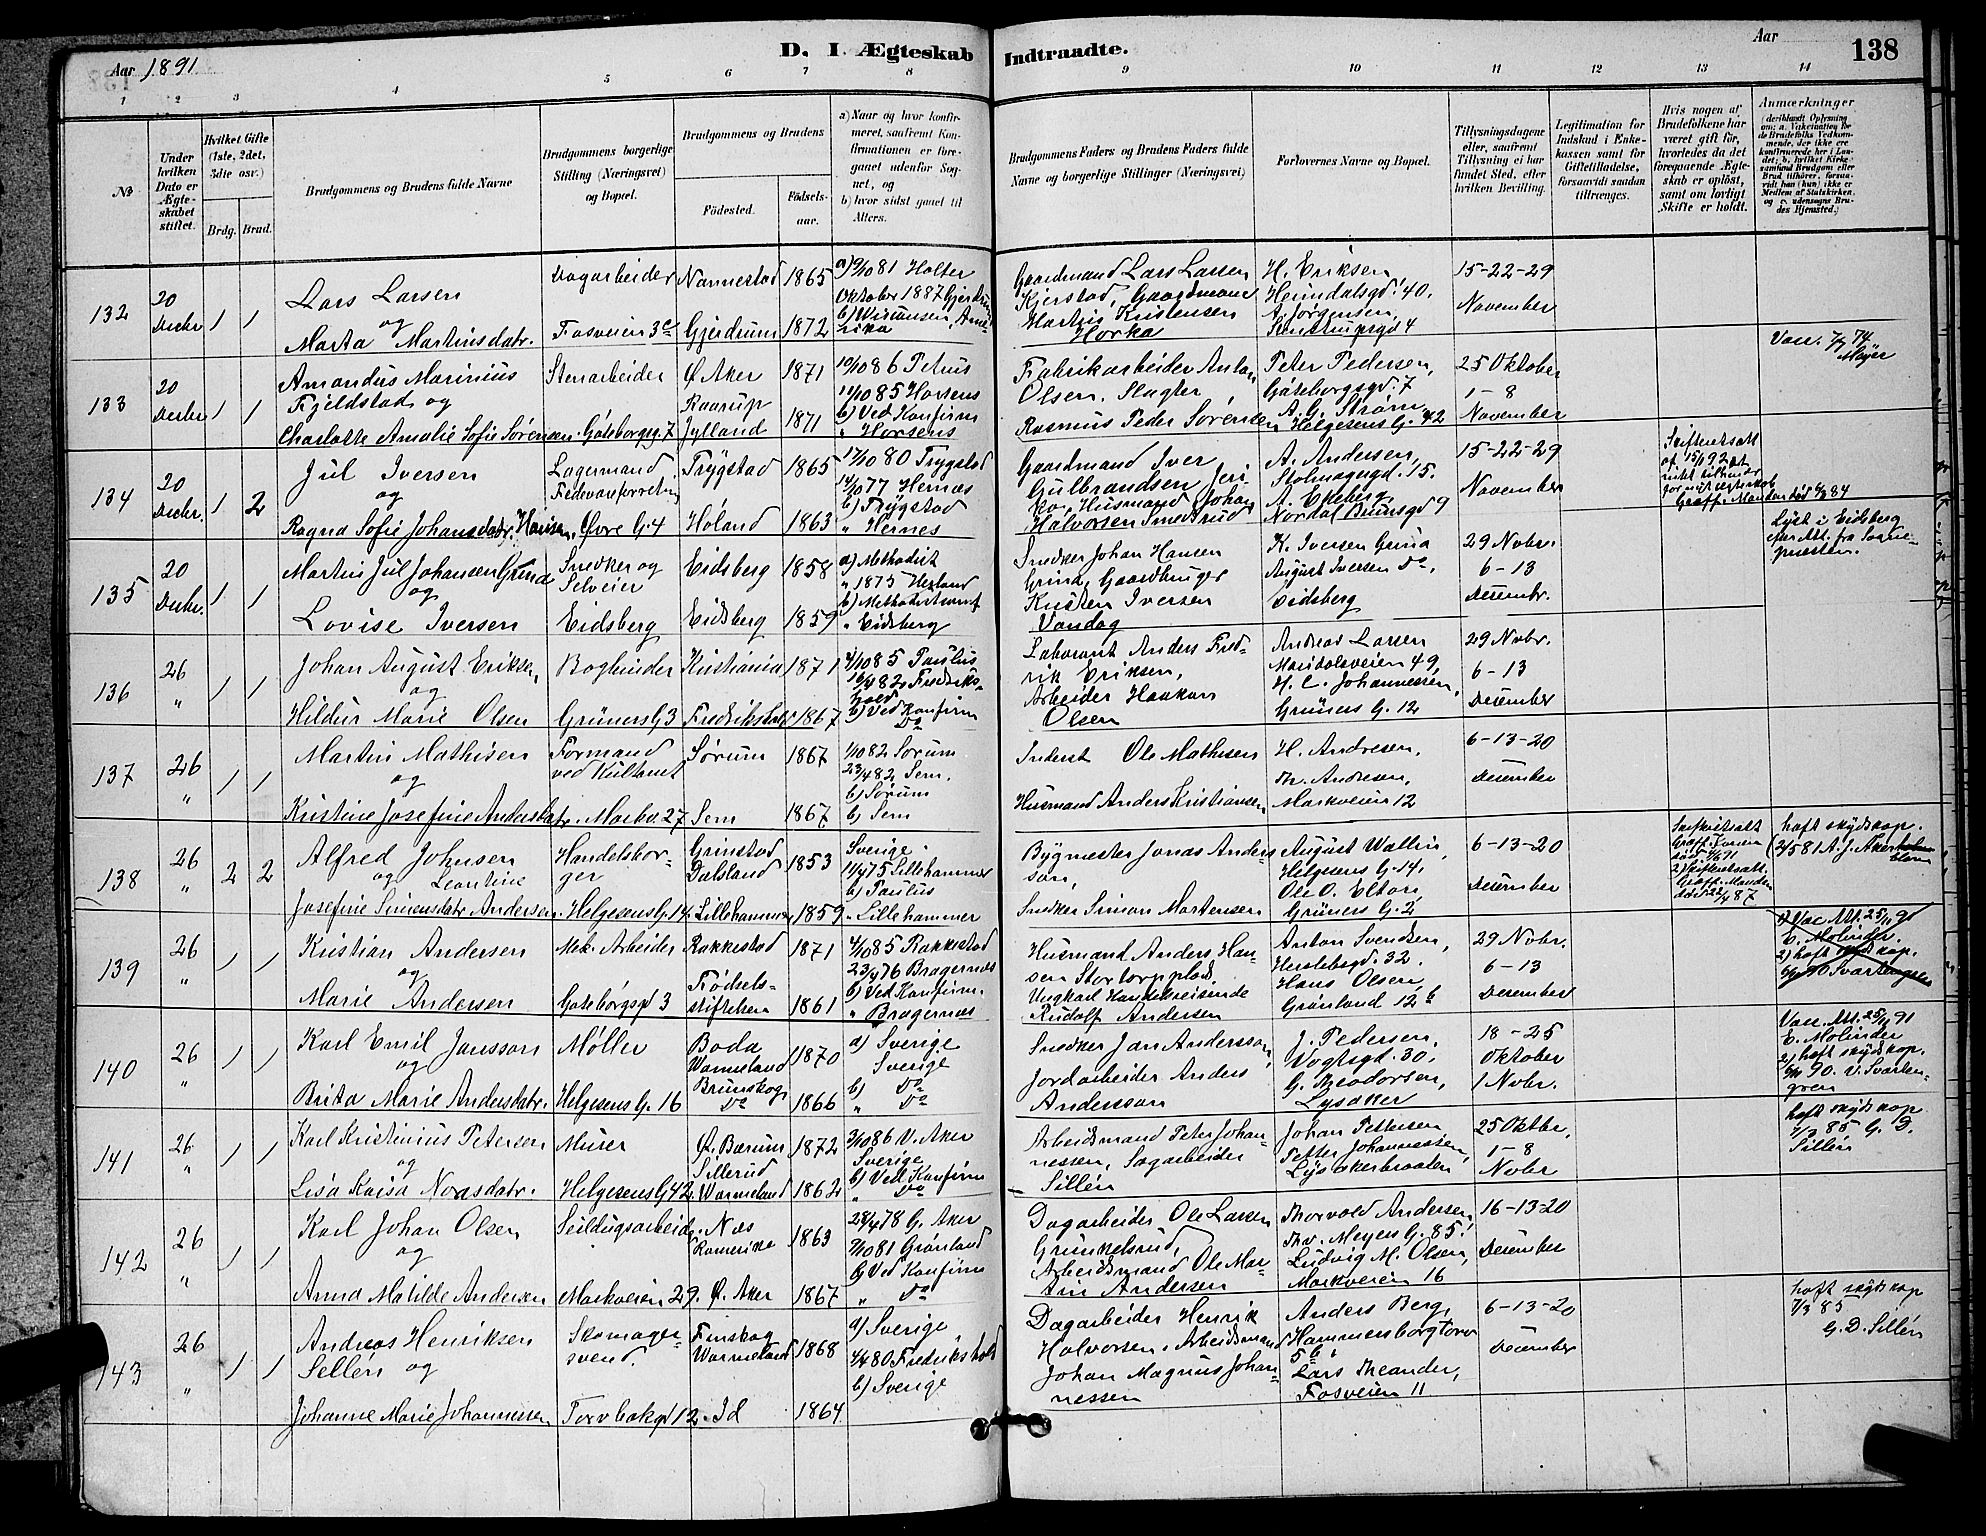 D. I. Ægteskab Indtraadte.
Aar 1891
Aar
138
1 2 3 4 5 6 7 8 9 10 11 12 13 14
No
Under hvilken Dato er Ægteskabet stiftet.
Hvilket Gifte (1ste, 2det, 3dte osv.)
Brdg. Brud.
Brudgommens og Brudens fulde Navne
Brudgommens borgerlige Stilling (Næringsvei) og Bopæl.
Brudgommens og Brudens
Fødested.
Fødselsaar.
a) Naar og hvor konfirmeret, saafremt Konfirmationen er foregaaet udenfor Sognet, og
b) hvor sidst gaaet til Alters.
Brudgommens Faders og Brudens Faders fulde Navne og borgerlige Stillinger (Næringsvei)
Forlovernes Navne og Bopæl.
Tillysningsdagene eller, saafremt Tillysning ei har fundet Sted, efter hvilken Bevilling.
Legitimation for Indskud i Enkekassen samt for Giftetilladelse, forsaavidt saadan tiltrænges.
Hvis nogen af Brudefolkene har været gift før, hvorledes da det foregaaende Ægteskab er opløst, samt om lovligt Skifte er holdt.
Anmærkninger
(deriblandt Oplysning om: a. Vakcination for de Brudefolks Vedkommende, der ikke ere konfirmerede her i Landet; b. hvilket Kirkesamfund Brudgom eller Brud tilhører, forsaavidt han (hun) ikke er Medlem af Statskirken, og c. udensogns Brudes Hjemsted.)
132
20 Decbr
1 1
Lars Larsen
og
Marta Martinsdatr.
Dagarbeider
Fosveien 3c
Nannestad 1865
Gjerdrum 1872
a) 9/10 81 Holter
Oktober 1887 Gjerdrum
Gaardmand Lars Larsen
Kjerstad, Gaardmand
Kristensen
Horka
H. Eriksen,
Heimdalsgd. 40.
A. Jørgensen,
4
15-22-29
November
133
20 Decbr
1 1
Amandus Marinius
Fjeldstad og
Charlotte Amalie Sofie Sørensen
Stenarbeider
Göteborgsg. 7
Ø. Aker 1871
Raarup
Jylland 1871
10/10 86 Petrus
11/10 85 Horsens
b) Ved Konfirm
" Horsens
Fabrikarbeider Anton
Olsen, Slagter,
Rasmus Peder Sørensen
Peter Pedersen,
Göteborgsgd. 7
A. G. Strøm
Helgesens G. 42
25 Oktober
1-8
November
Vacc. 7/7 74
Møjer
134
20 Decbr.
1 2
Jul Iversen
og
Ragna Sofie Johansdatr. Hansen
Lagermand
Fedevareforretning
Øvre G. 4
Trygstad 1865
Høland 1863
17/10 80 Trygstad
14/10 77 Hernæs
b) Trygstad
" Hernes
Gaardmand Iver
Gulbrandsen
Husmand Johan
Halvorsen Smedsrud
A. Andersen,
Stolmagergd. 15.
A. Ekeberg
Nordal Brunsgd 9
15-22-29
November
Skifteretsatt
af 15/9 92
135
20 Decbr.
1 1
Martin Jul Johansen Grind
og
Lovise Iversen
Snedker og
Selveier
Eidsberg
Eidsberg 1858
Eidsberg 1859
a) Methodist
" 1873
b) Methodistsamf
" Eidsberg
Snedker Johan Hansen
Grind, Gaardbruger
Kristen Iversen
Vandog
K. Iversen Grind
August Iversen Do,
Eidsberg
29 Novbr.
6-13
Decembr.
Lyst i Eidsberg
efter Att. fra Sognepræsten.
136
26 "
1 1
Johan August Eriksen,
og
Hildur Marie Olsen
Bogbinder
Grüners G. 3
Kristiania 1871
Fredrikshald 1867
4/10 85 Paulus
16/4 82 Fredrikshald
b) Ved Konfirm
Do
Laborant Anders Fredrik Eriksen,
Arbeider Haakon
Olsen
Andreas Larsen
Maridalsveien 49,
H. C. Johannessen,
Grüners G. 12
29 Novbr.
6-13
December
137
26 "
1 1
Martin Mathisen
og
Kristine Josefine Andersdatr.
Formand
ved Kulhavet
Markv. 27
Sørum 1867
Sem 1867
1/10 82 Sørum
23/4 82 Sem.
b) Sørum
b) Sem
Inderst Ole Mathisen
Husmand Anders Kristiansen
H. Andresen,
Th. Andresen,
Markveien 12
6-13-20
December
138
26 "
2 2
Alfred Johnsen
og Leontine
Josefine Simensdatr Andersen
Handelsborger
Helgesens G. 14
Grinstad
Dalsland 1853
Lillehammer 1859
Sverige.
11/4 75 Lillehammer
b) Paulus
" Lillehammer
Bygmester Jonas Anderson,
Snedker Simon Mortensen
August Wallin,
Helgesens G. 14.
Ole O. Elton,
Grüners G. 2
6-13-20
December
haft skydskop.
139
26 "
1 1
Kristian Andersen
og
Marie Andersen
Mek. Arbeider
Göteborgsgd 3
Rakkestad 1871
Fødselsstiftelsen 1861
4/10 85 Rakkestad
23/4 76 Bragernæs
b) Ved Konfirm.
" Bragernæs
Husmand Anders Hansen Stortorpplads
Ungkarl Handelsreisende
Rudolf Andersen
Anton Svendsen,
Herslebsgd. 32.
Hans Olsen,
Grønland 12 b
29 Novbr.
6-13
December
140
26 "
1 1
Karl Emil Jansson
og
Brita Marie Andersdatr.
Møller
Helgesens G. 16
Boda
Warmeland 1870
Brunskog
Do 1866
a) Sverige
Sverige
b) Do
" Do
Snedker Jan Andersson,
Jordarbeider Anders
Andersson
J. Pedersen,
Vogtsgd. 30,
G. Theodorsen,
Lysaker
18-25
Oktober
1 Novbr.
Vacc. Att. 25/11 91
E. Molinder
2) haft skydskop.
6/11 90. V. Svartengren
141
26 "
1 1
Karl Kristinius Petersen
og
Lisa Kaisa Noasdatr.
Murer
Helgesens G. 42
Ø. Bærum 1872
Sillerud
Warmeland 1862
3/10 86 V. Aker
Sverige
b) Ved Konfirm
" Do
Arbeidsmand Peter Johannessen, Dagarbeider
Sillén
Johan Pettersen,
Petter Johannessen,
Lysakerbraaten
25 Oktbr.
1-8
Novbr
haft skydskop
7/3 85 G. D.
Sillén
142
26 "
1 1
Karl Johan Olsen
og
Anna Matilde Andersen
Seildugsarbeider
Markveien 29.
Næs
Romerike 1863
Ø. Aker 1867
28/4 78 G. Aker
2/10 81 Grønland
b) Ved Konfirm
" Do
Dagarbeider Ole Larsen
Grünkelsrud,
Arbeidsmand Ole Martin Andersen
Thorvald Andersen,
Thv. Meyers G. 85.
Ludvig M. Olsen,
Markveien 16
16-13-20
December
143
26 "
1 1
Andreas Henriksen
Sellén og
Johanne Marie Johannessen
Skomagersvend.
Torvbakgd 12.
Finskog
Warmeland 1868
Id 1864
a) Sverige
4/4 80 Fredrikshald
b) Sverige
Dagarbeider Henrik
Halvorsen. Arbeidsmand
Johan Magnus Johannessen
Anders Berg,
Hammersborgtorv
5 b,
Lars Theander,
Fosveien 11
6-13-20
December
haft skydskop
7/3 85
G. D. Sillén